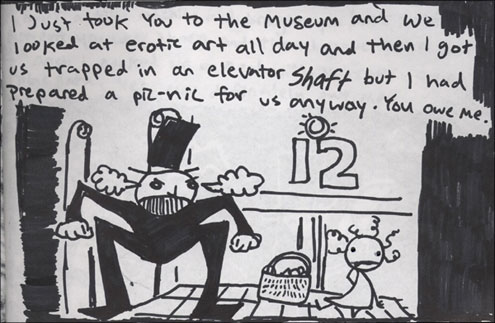 I Just took You to the Museum and we
looked at erotic art all day and then I got
us trapped in an elevator Shaft but I had
prepared a pic-nic for us anyway. You owe me.
12